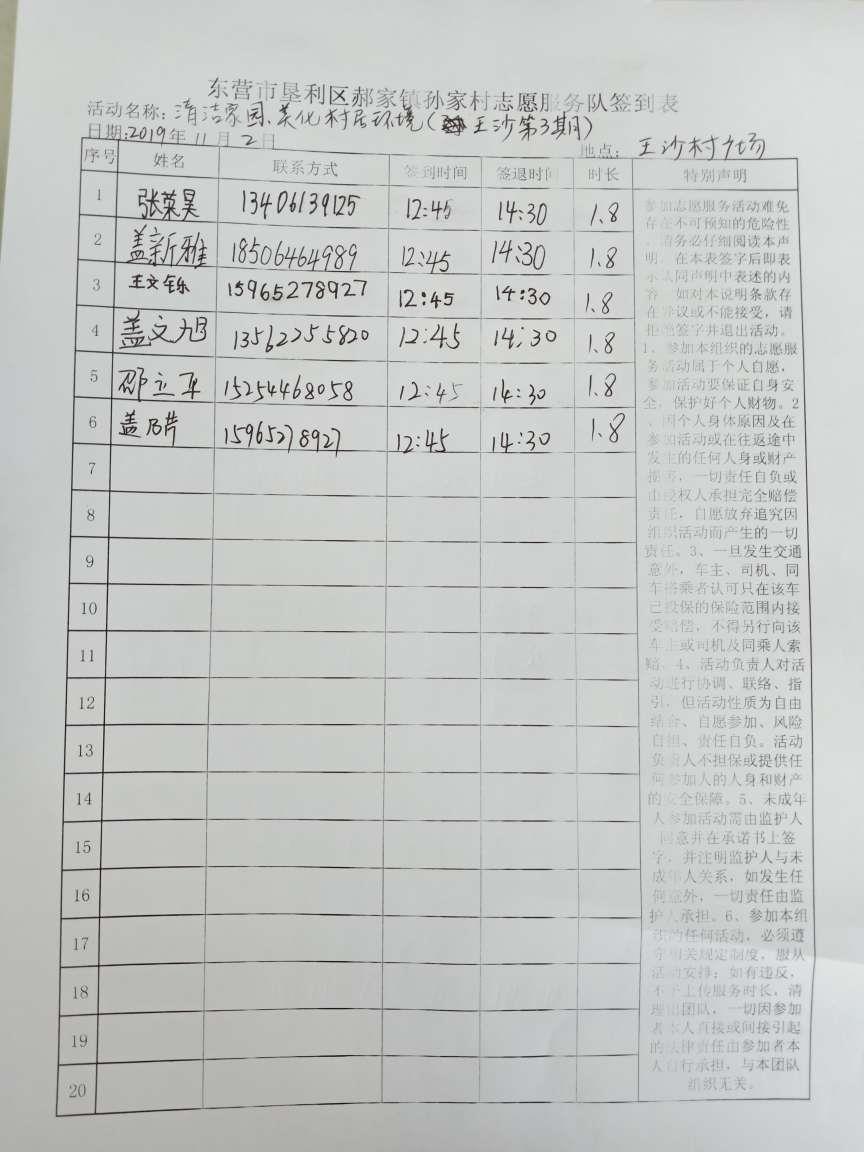 东营市垦利区郝家镇孙家村志愿服务队签到表
活动名称:清洁家园、美化村居环境(王沙第3期)
日期:2019年11月2日 地点:王沙村广场
序号 姓名 联系方式 签到时间 签退时间 时长 特别声明
1 张荣昊 13406139125 12:45 14:30 1.8
2 盖新雅 18506464989 12:45 14:30 1.8
3 王文钰 15965278927 12:45 14:30 1.8
4 盖文旭 13562255820 12:45 14:30 1.8
5 邵立军 15254468058 12:45 14:30 1.8
6 盖乃芹 15965278927 12:45 14:30 1.8
7
8
9
10
11
12
13
14
15
16
17
18
19
20
参加志愿服务活动难免
存在不可预知的危险性
,请务必仔细阅读本声
明,在本表签字后即表
示认同声明中表述的内
容,如对本说明条款存
在异议或不能接受,请
拒绝签字并退出活动。
1、参加本组织的志愿服
务活动属于个人自愿,
参加活动要保证自身安
全,保护好个人财物。2
、因个人身体原因及在
参加活动或在往返途中
发生的任何人身或财产
损害,一切责任自负或
由授权人承担完全赔偿
责任,自愿放弃追究因
组织活动而产生的一切
责任。3、一旦发生交通
意外,车主、司机、同
车搭乘者认可只在该车
已投保的保险范围内接
受赔偿,不得另行向该
车主或司机及同乘人索
赔。4、活动负责人对活
动进行协调、联络、指
引,但活动性质为自由
结合、自愿参加、风险
自担、责任自负。活动
负责人不担保或提供任
何参加人的人身和财产
的安全保障。5、未成年
人参加活动需由监护人
同意并在承诺书上签
字,并注明监护人与未
成年人关系,如发生任
何意外,一切责任由监
护人承担。6、参加本组
织的任何活动,必须遵
守相关规定制度,服从
活动安排;如有违反,
不予上传服务时长,清
理出团队,一切因参加
者本人直接或间接引起
的法律责任由参加者本
人自行承担,与本团队
组织无关。